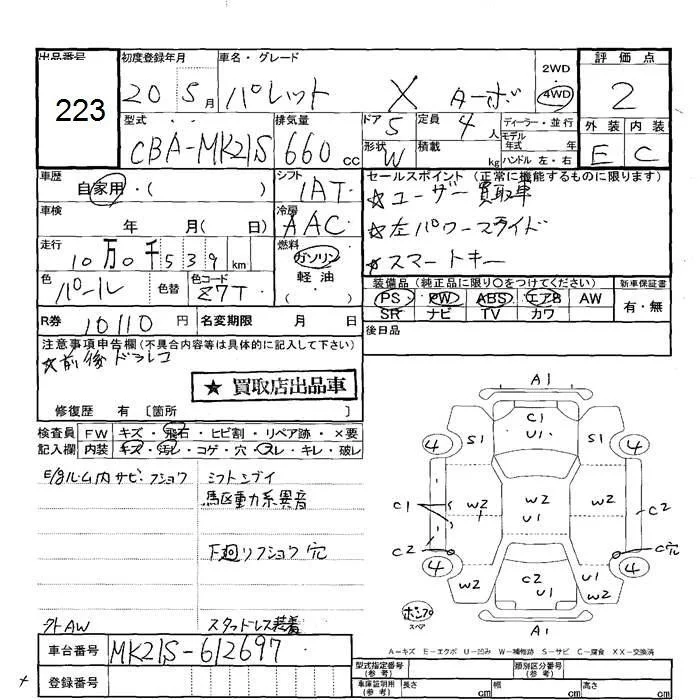 出品番号
223
初度登録年月
20年5月
車名・グレード
パレット X ターボ
2WD
4WD
評価点
2
型式
CBA-MK21S
排気量
660cc
ドア
5
定員
4人
ディーラー・並行
モデル年式 年
ハンドル 左・右
形状
W
積載
kg
外装
E
内装
C
車歴
自家用・( )
シフト
IAT
セールスポイント(正常に機能するものに限ります)
☆ユーザー買取車
☆左パワースライド
☆スマートキー
車検
年 月( 日)
冷房
AAC
走行
10万0千539km
燃料
ガソリン
軽油
( )
色
パール
色替
色コード
Z7T
装備品(純正品に限り○をつけてください)
PS PW ABS エアB AW
SR ナビ TV カワ
新車保証書
有・無
R券
10110円
名変期限 月 日
後日品
注意事項申告欄(不具合内容等は具体的に記入して下さい)
☆前後ドラレコ
★買取店出品車
修復歴 有〔箇所 〕
検査員記入欄
FW キズ・飛石・ヒビ割・リペア跡・×要
内装 キズ・汚レ・コゲ・穴・スレ・キレ・破レ
E/gルーム内サビ・フショウ
シフトシブイ
駆動力系異音
下廻りフショク穴
外AW
スタッドレス装着
車台番号
MK21S-612697
登録番号
A1
C1
U1
4
S1
S1
4
C1
W2
W2
W2
U1
C2
C2
C穴
4
W2
C2
U1
U1
W2
4
ポンプ
スペア
A1
A-キズ E-エクボ U-凹み W-補修跡 S-サビ C-腐食 XX-交換済
型式指定番号(参考)
類別区分番号(参考)
車庫証明用(参考)
長さ cm
幅 cm
高さ cm